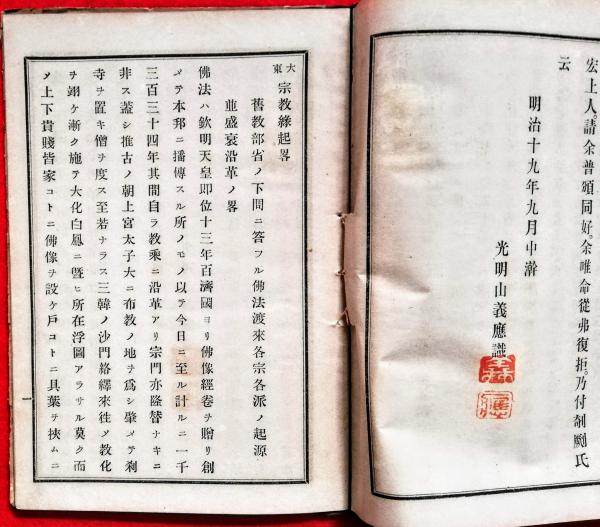 宏上人。請余普頒同好。余唯命從弗復拒。乃付剞劂氏
云
明治十九年九月中澣
光明山義應識
大東宗教縁起畧
舊教部省ノ下問ニ答フル佛法渡來各宗各派ノ起源
並盛衰沿革ノ畧
佛法ハ欽明天皇即位十三年百濟國ヨリ佛像經卷ヲ贈リ創
メテ本邦ニ播傳スル所ノモノ以テ今日ニ至ル計ルニ一千
三百三十四年其間自ラ教乘ニ沿革アリ宗門亦隆替ナキニ
非ス蓋シ推古ノ朝上宮太子大ニ布教ノ地ヲ爲シ肇メテ刹
寺ヲ置キ僧ヲ度ス至若ナラス三韓ノ沙門絡繹來徃メ教化
ヲ翊ケ漸ク施テ大化白鳳ニ曁ヒ所在浮圖アラサル莫ク而
メ上下貴賤皆家コトニ佛像ヲ設ケ戸コトニ具葉ヲ挾ムニ
一